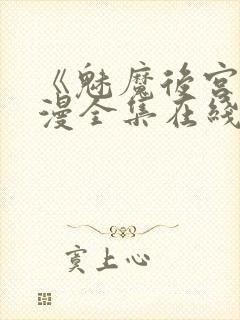 《魅魔後宮
漫全集在綫
寞上心